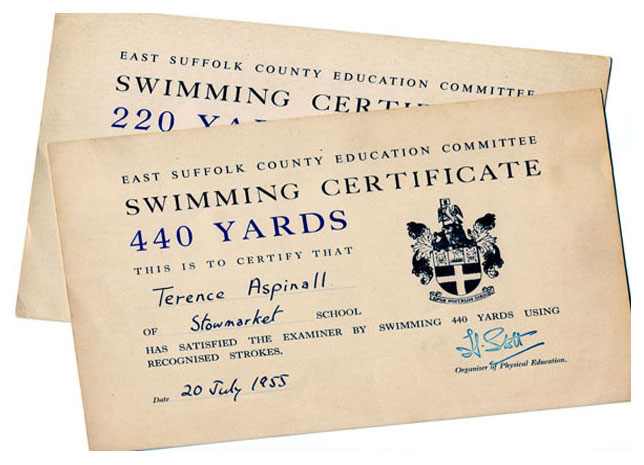 EAST SUFFOLK COUNTY EDUCATION COMMITTEE
SWIMMING CERTIF
220 YAR
EAST SUFFOLK COUNTY EDUCATION COMMITTEE
SWIMMING CERTIFICATE
440 YARDS
THIS IS TO CERTIFY THAT
Terence Aspinall
OF Stowmarket SCHOOL
HAS SATISFIED THE EXAMINER BY SWIMMING 440 YARDS USING
RECOGNISED STROKES.
Organiser of Physical Education.
Date 20 July 1955